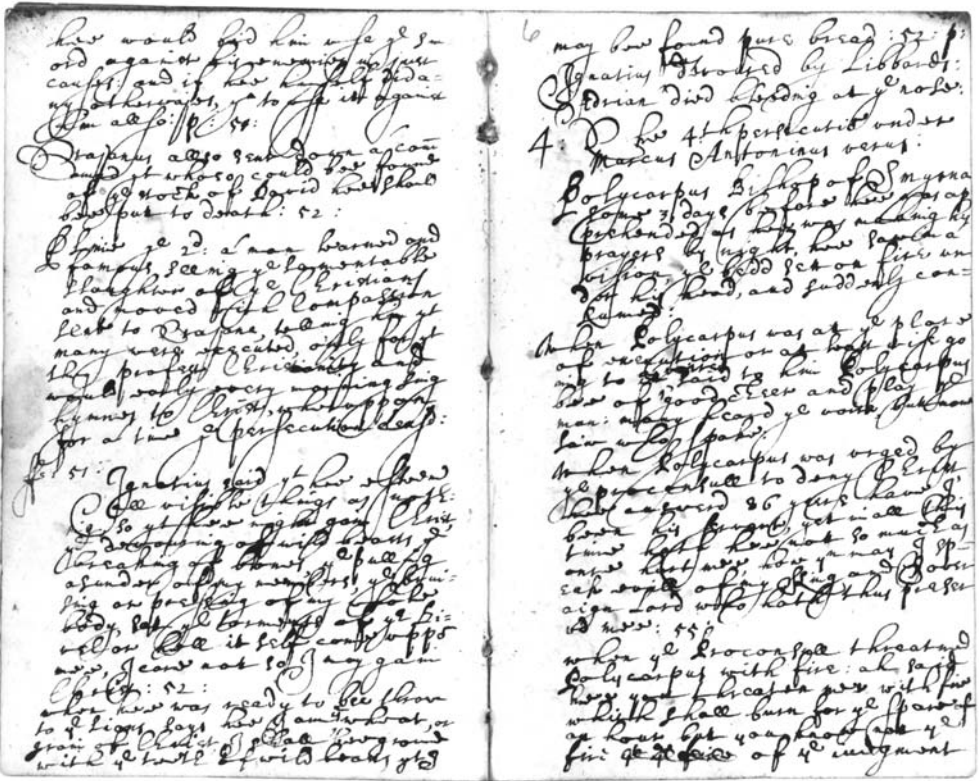 hee would bid him use ye sw
ord against his enemies in just
causes: and if hee himself did a-
ny otherwayes, yn to use it against
him allso: p: 50:
Trajanus allso sent down a com
and yt whoso could bee found
of ye stock of David hee should
bee put to death: 52:
Plinie ye 2d: a man learned and
famous seeing ye lamentable
slaughter of ye Christians
and moved with Compassion
sent to Trajane, telling him yt
many were executed, only for yt
they profess Christianity and
would early every morning sing
hymnes to Christ, whereuppon
for a time ye persecution ceasd:
p: 51: Ignatius said yt hee esteem
all visible things as noth:
so yt hee might gain Christ,
ye devouring of wild beasts, ye
breaking of bones, ye pulling
asunder of my members, ye brui-
sing or pressing of my whole
body, let ye torments of ye di-
vel or hell it self come uppo
mee, I care not so I may gain
Christ: 52:
when hee was ready to bee throw
to ye lions, says hee I am wheat, or
grain of Christ I shall bee ground
with ye teeth of wild beasts yt I
6
may bee found pure bread: 52: p:
Ignatius devoured by Libbards:
Adrian died bleeding at ye nose:
4 The 4th persecutio under
Marcus Antoninus verus:
Polycarpus Bishop of Smyrna
some 3 days before hee was ap
prehended as hee was making his
prayers by night, hee saw in a
vision, ye bedd set on fire un
der his head, and suddenly con-
sumed:
When Polycarpus was at ye place
of execution or at least as hee go
ing to it said to him Polycarpus
bee of good cheer and play ye
man: many heard ye voice but none
saw who spake:
When Polycarpus was urged by
ye proconsull to deny Christ,
hee answerd 86 years have I
been his servant, yet in all this
time hath hee not so much as
once hurt mee how yn may I sp-
eak evill of my King and Sover
aign Lord who hath thus preser
ved mee: 55:
when ye Proconsull threatned
Polycarpus with fire: ah said
hee you threaten mee with fire
which shall burn for ye space of
an hour but you know not ye
fire of ye judgment